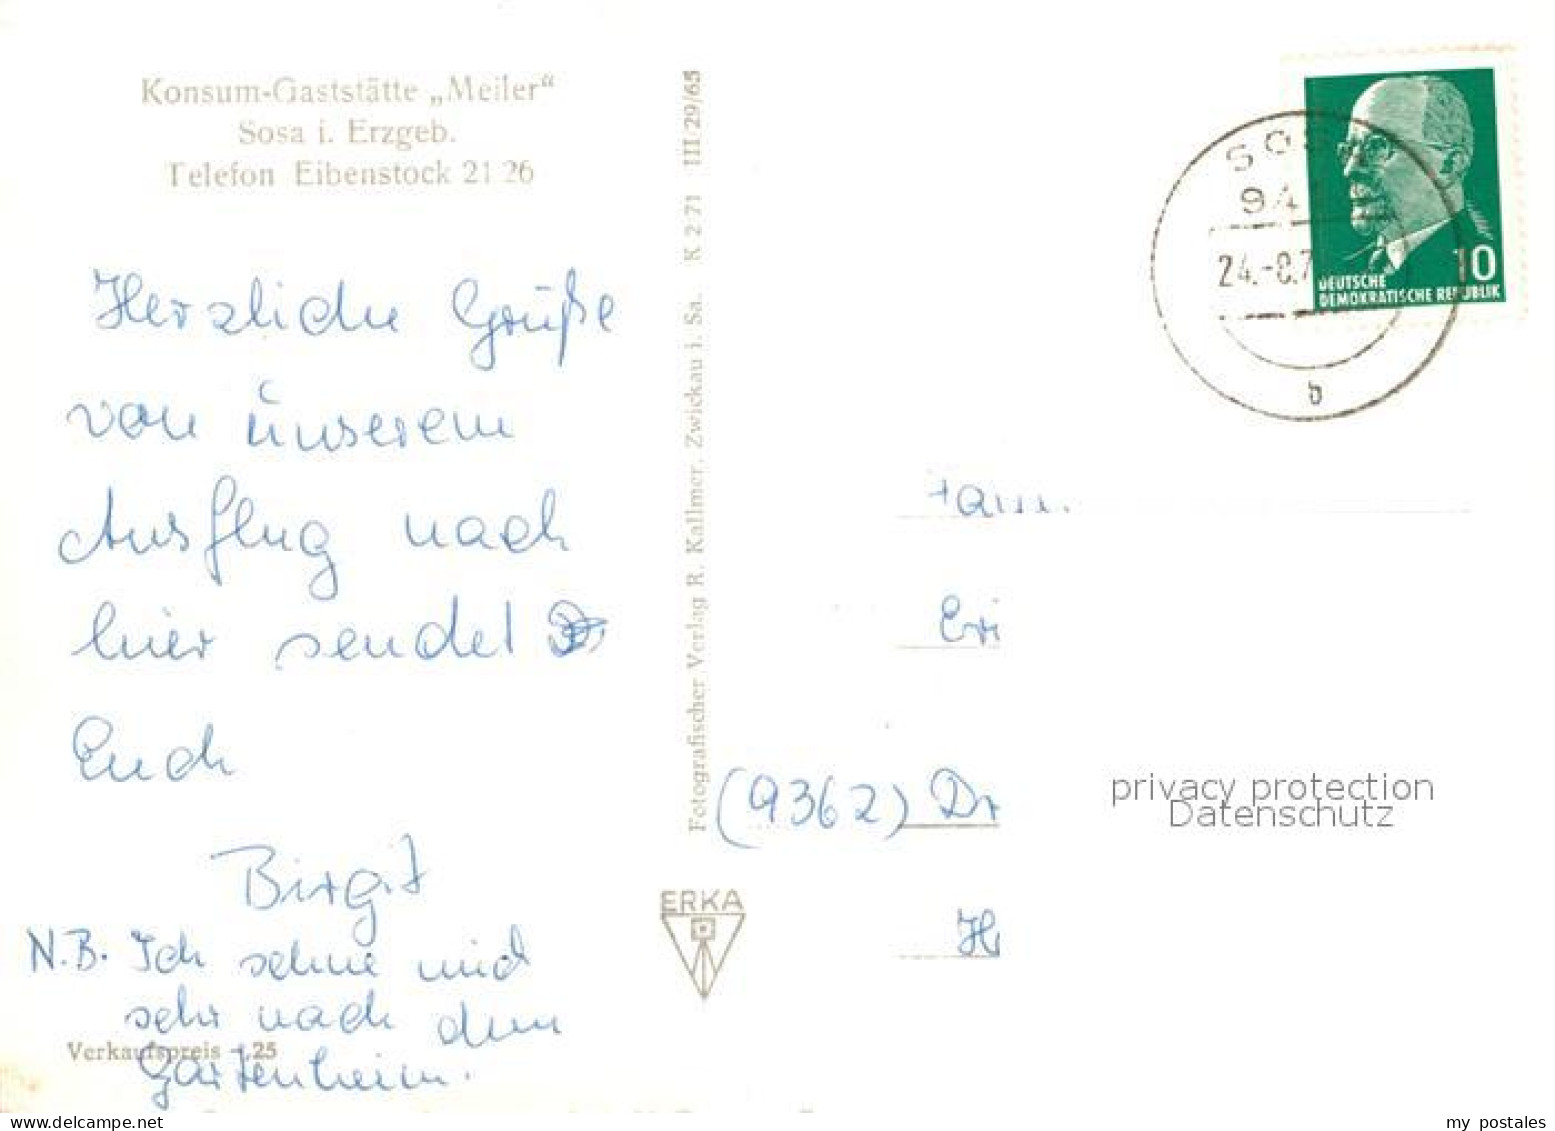 Konsum-Gaststätte „Meiler“
Sosa i. Erzgeb.
Telefon Eibenstock 21 26
Herzliche Grüße
von unserem
Ausflug nach
hier sendet
Euch
Birgit
N.B. Ich sehne mich
sehr nach dem
Gartenheim.
Verkaufspreis -,25
Fotografischer Verlag R. Kallmer, Zwickau i. Sa. K 2 71 III/29/65
ERKA
SOS
94
24.-8.7
b
10
DEUTSCHE
DEMOKRATISCHE REPUBLIK
Fam.
Eri
(9362) Dr
H
privacy protection
Datenschutz
my postales